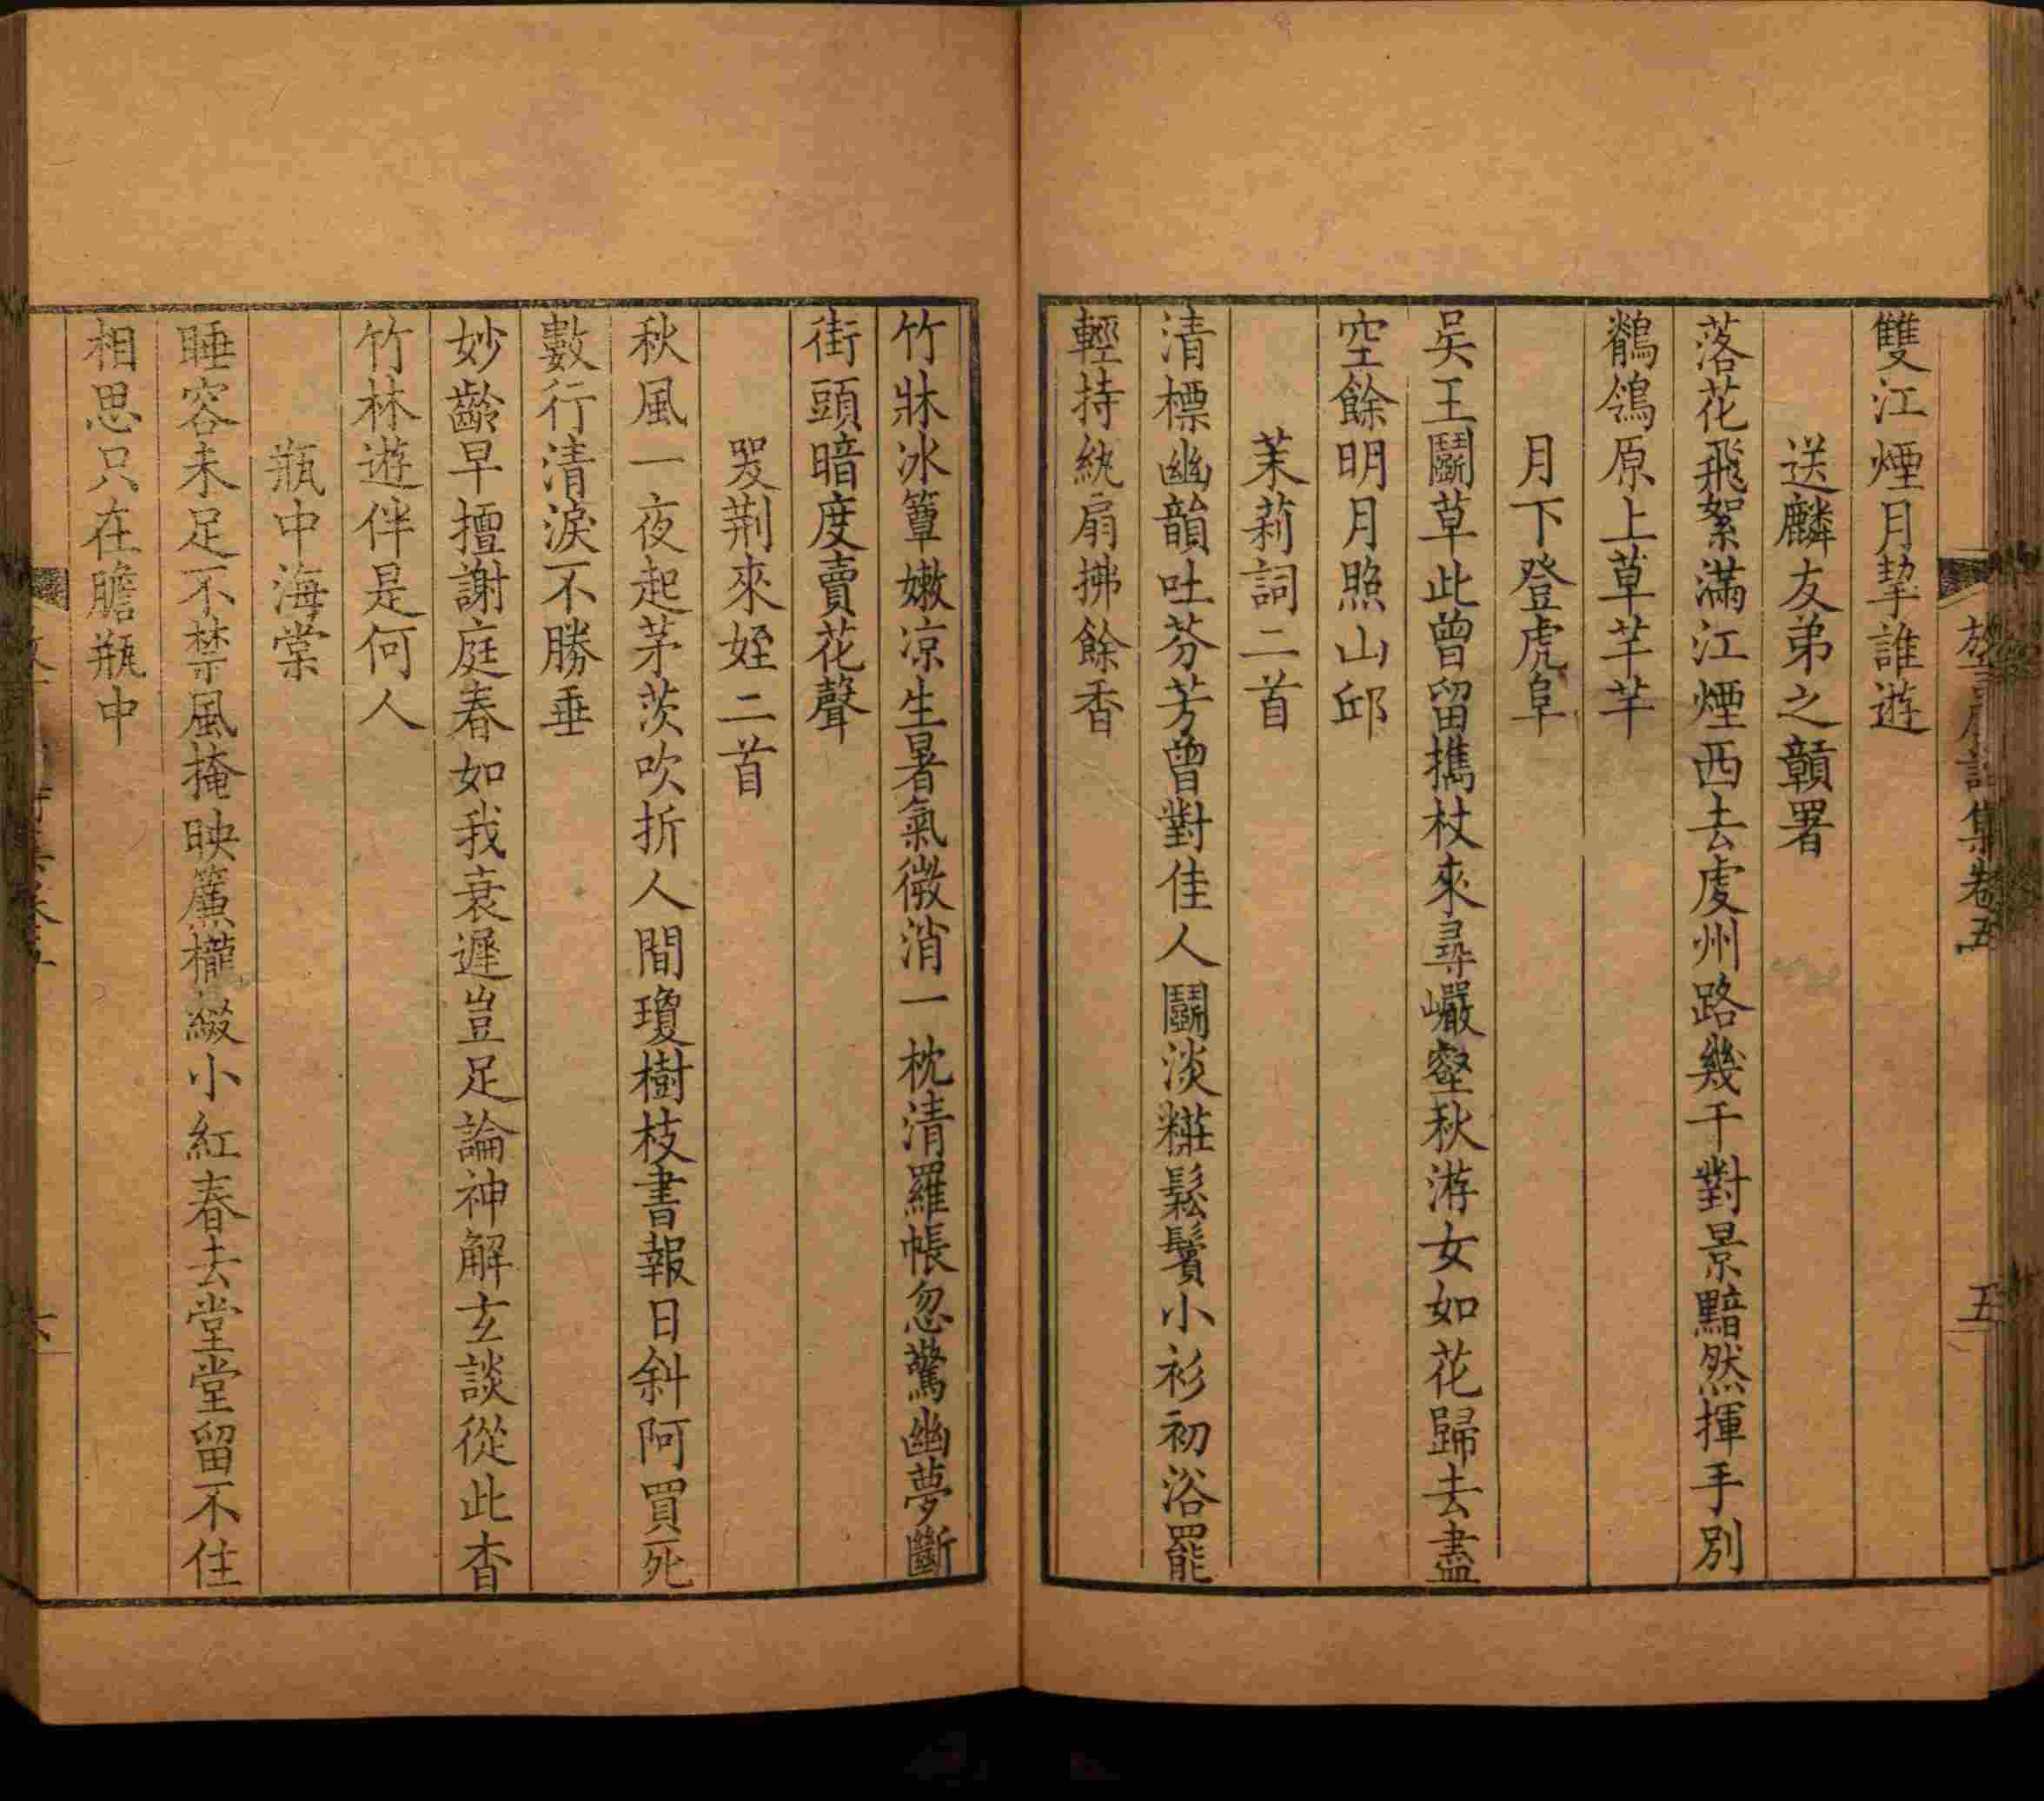 雙江煙月挈誰遊
送麟友弟之贛署
落花飛絮滿江煙西去虔州路幾千對景黯然揮手別
鶺鴒原上草芊芊
月下登虎阜
吳王鬬草此曾留攜杖來尋巖壑秋游女如花歸去盡
空餘明月照山邱
茉莉詞二首
清標幽韻吐芬芳曾對佳人鬬淡糚鬆鬢小衫初浴罷
輕持紈扇拂餘香
竹牀冰簟嫩凉生暑氣微消一枕清羅帳忽驚幽夢斷
街頭暗度賣花聲
哭荆來姪二首
秋風一夜起茅茨吹折人間瓊樹枝書報日斜阿買死
數行清淚不勝垂
妙齡早擅謝庭春如我衰遲豈足論神解玄談從此杳
竹林遊伴是何人
瓶中海棠
睡容未足不禁風掩映簾櫳綴小紅春去堂堂留不住
相思只在膽瓶中
集卷五
五
六